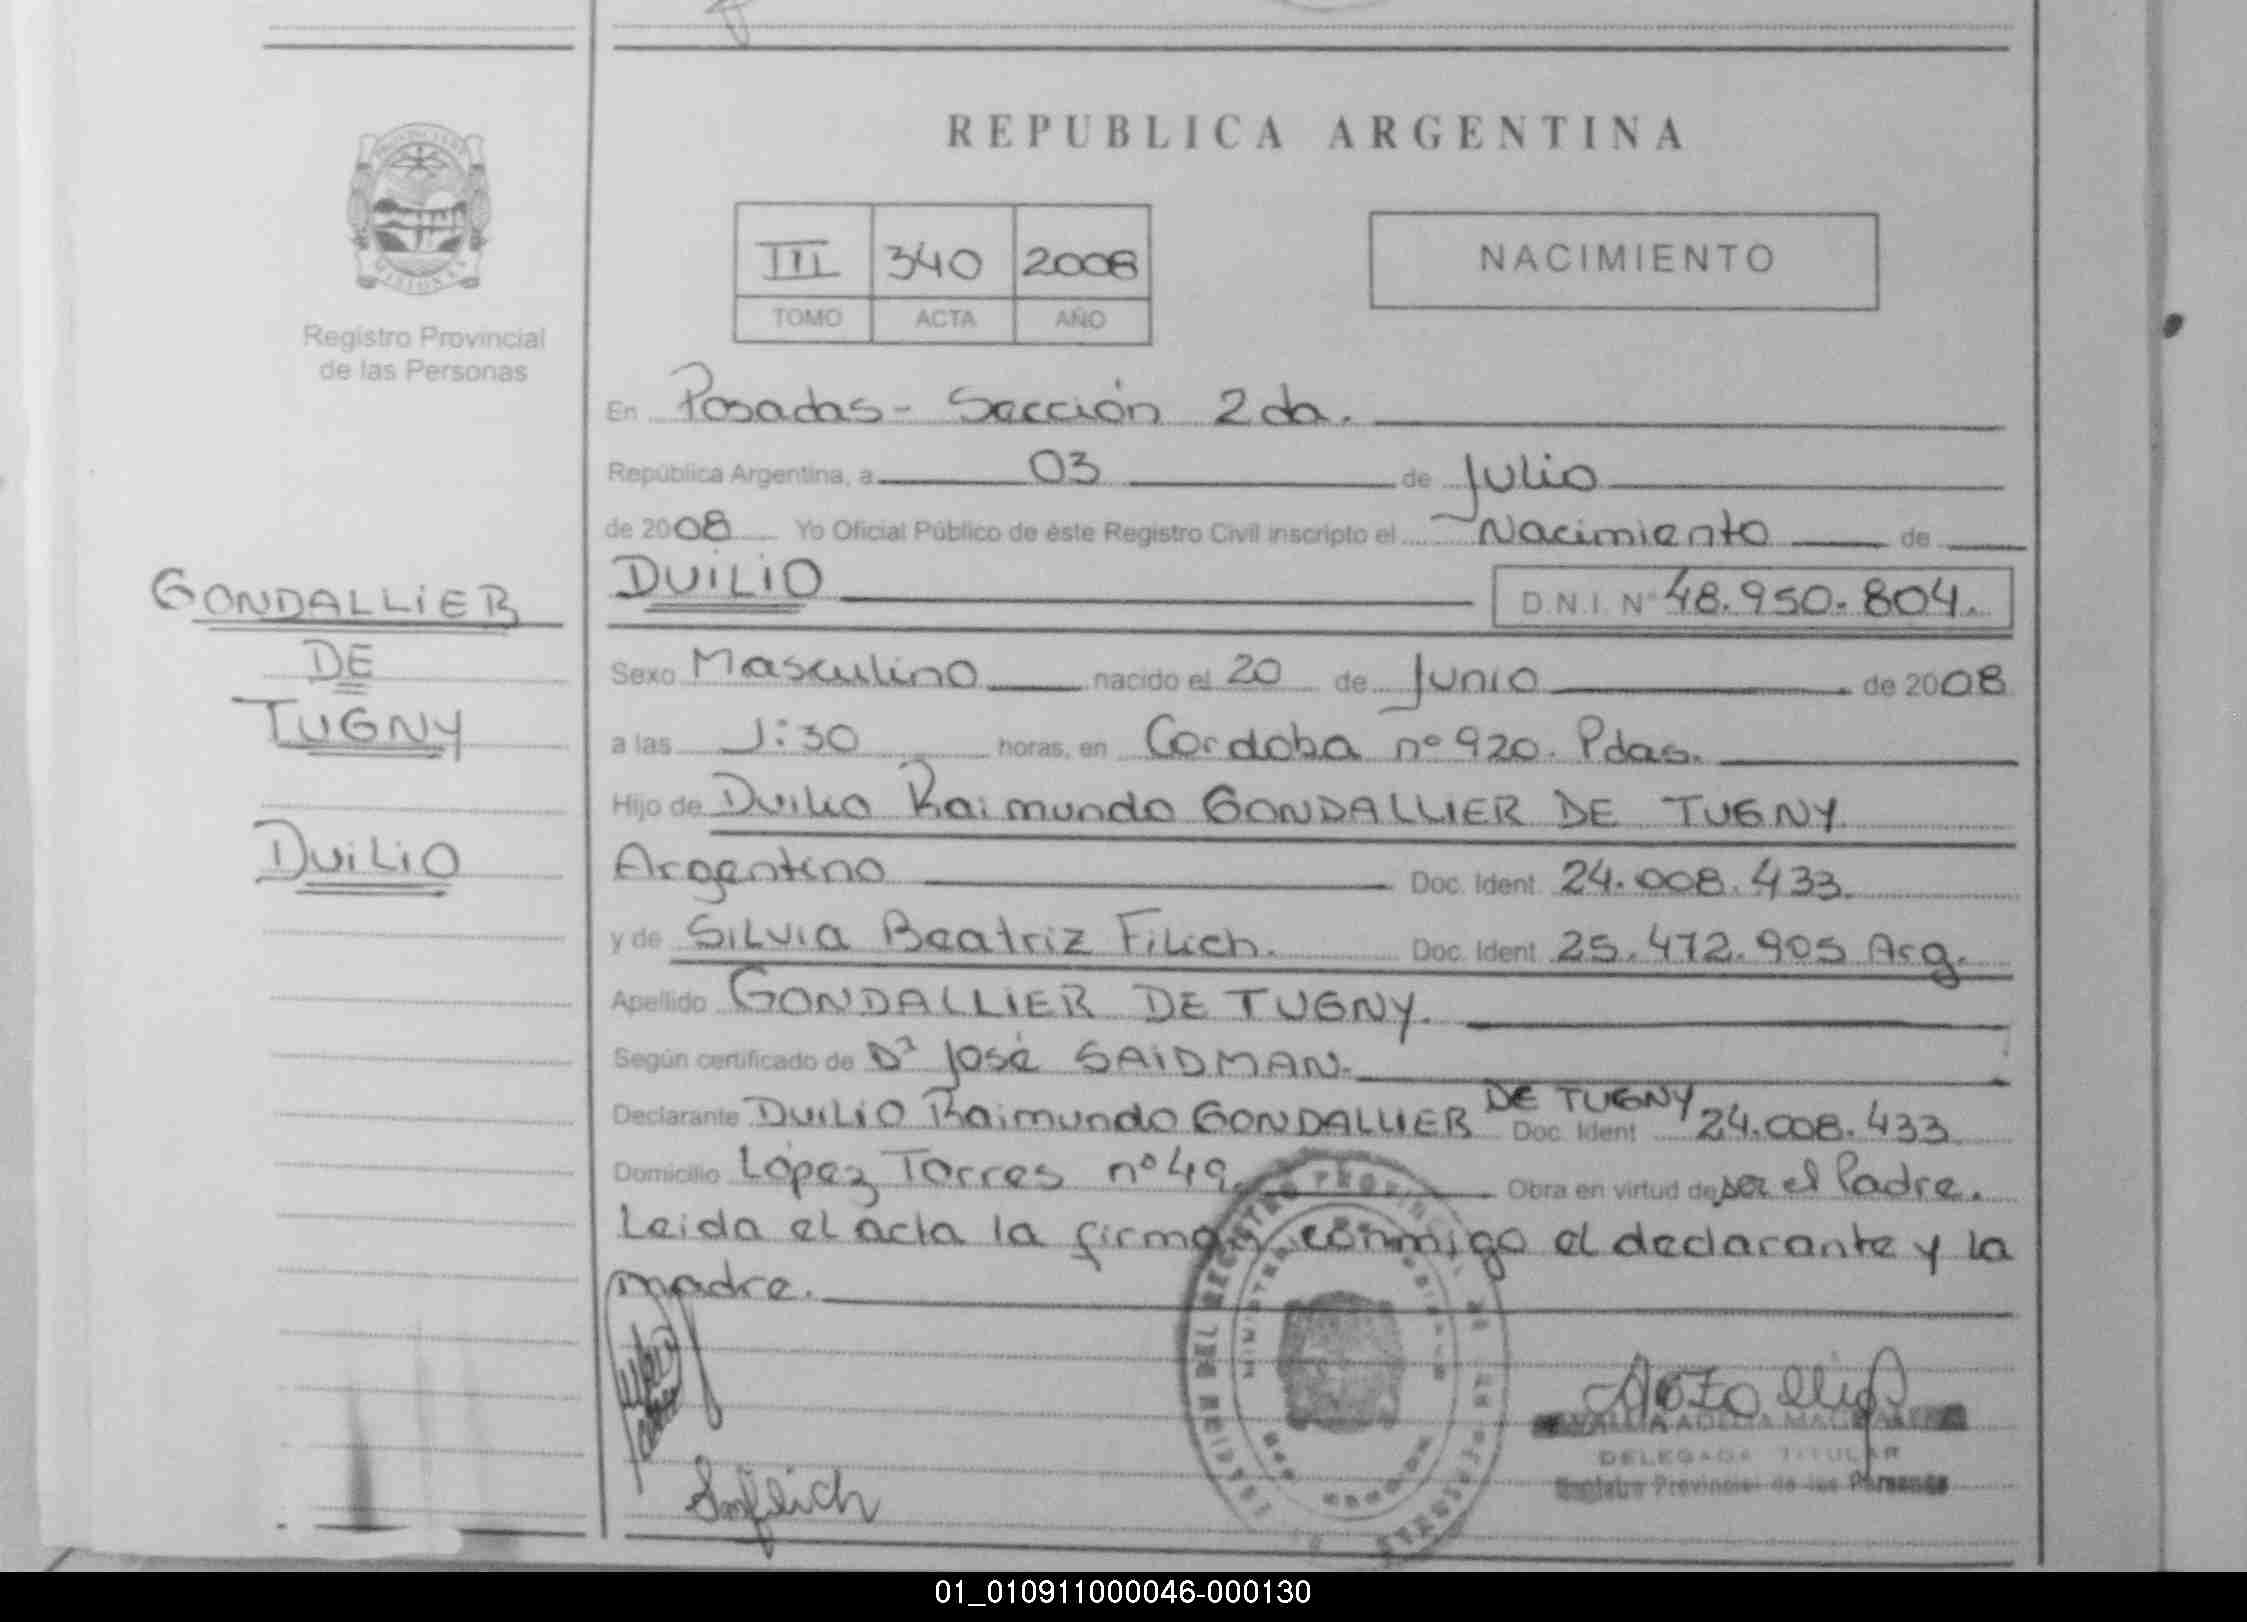 REPUBLICA ARGENTINA
III 340 2008
TOMO ACTA AÑO
NACIMIENTO
Registro Provincial
de las Personas
En Posadas - Sección 2da.
República Argentina, a 03 de Julio
de 2008 Yo Oficial Público de éste Registro Civil inscripto el Nacimiento de
DUILIO D.N.I. Nº 48.950.804.
GONDALLIER
DE
TUGNY
DUILIO
Sexo Masculino nacido el 20 de Junio de 2008
a las 1:30 horas, en Cordoba nº 920. Pdas.
Hijo de Duilio Raimundo GONDALLIER DE TUGNY
Argentino Doc. Ident 24.008.433.
y de Silvia Beatriz Filich. Doc. Ident 25.472.905 Arg.
Apellido GONDALLIER DE TUGNY.
Según certificado de Dr José SAIDMAN.
Declarante DUILIO Raimundo GONDALLIER DE TUGNY Doc. Ident 24.008.433
Domicilio López Torres nº 49. Obra en virtud de ser el Padre.
Leida el acta la firman conmigo el declarante y la
madre.
DELEGADA TITULAR
Registro Provincial de las Personas
01_010911000046-000130